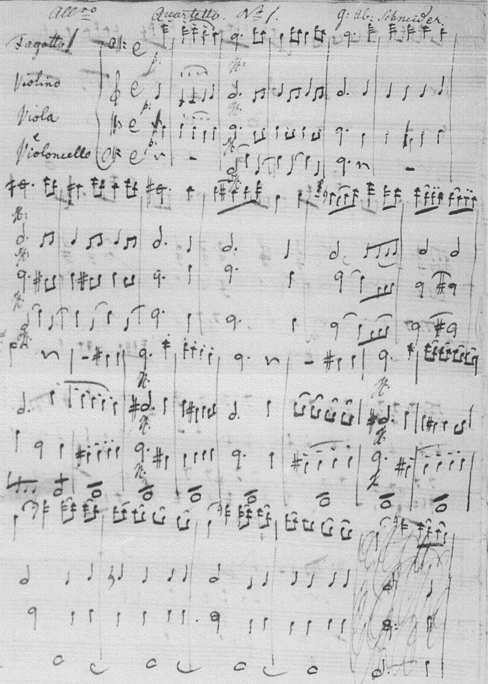 All:ro Quartetto. No 1. G: Ab: Schneider.
Fagotto
Violino
Viola
e
Violoncello